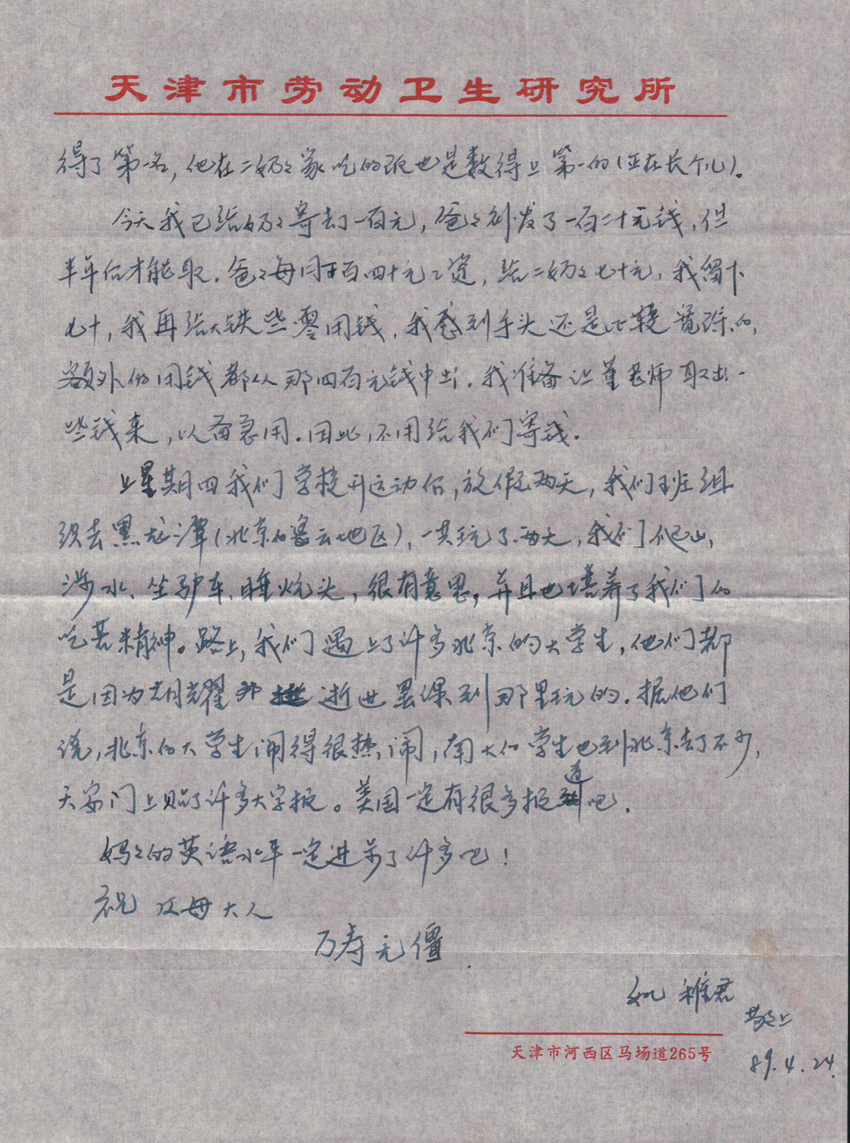 天津市劳动卫生研究所
得了第一名，他在二奶々家吃的饭也是数得上第一的（正在长个儿）。
今天我已给奶々寄去了一百元，爸々则发了一百二十元钱，但
半年后才能取。爸々每月百四十元工资，给二奶々七十元，我留下
七十，我再给大铁些零用钱，我感到手头还是比较宽踪的，
额外的用钱都从那四百元钱中出。我准备让董老师取出一
些钱来，以备急用。因此，不用给我们寄钱。
上星期四我们学校开运动会，放假两天，我们班组
织去黑龙潭（北京的密云地区），一共玩了两天，我们爬山，
涉水、坐驴车、睡炕头，很有意思，并且也培养了我们的
吃苦精神。路上，我们遇上了许多北京的大学生，他们都
是因为胡耀邦逝世罢课到那里玩的。据他们
说，北京的大学生闹得很热闹，南大的学生也到北京去了不少，
天安门上贴了许多大字报。美国一定有很多报道吧。
妈々的英语水平一定进步了许多吧！
祝 父母大人
万寿无僵
儿 稚君
敬上
89.4.24.
天津市河西区马场道265号